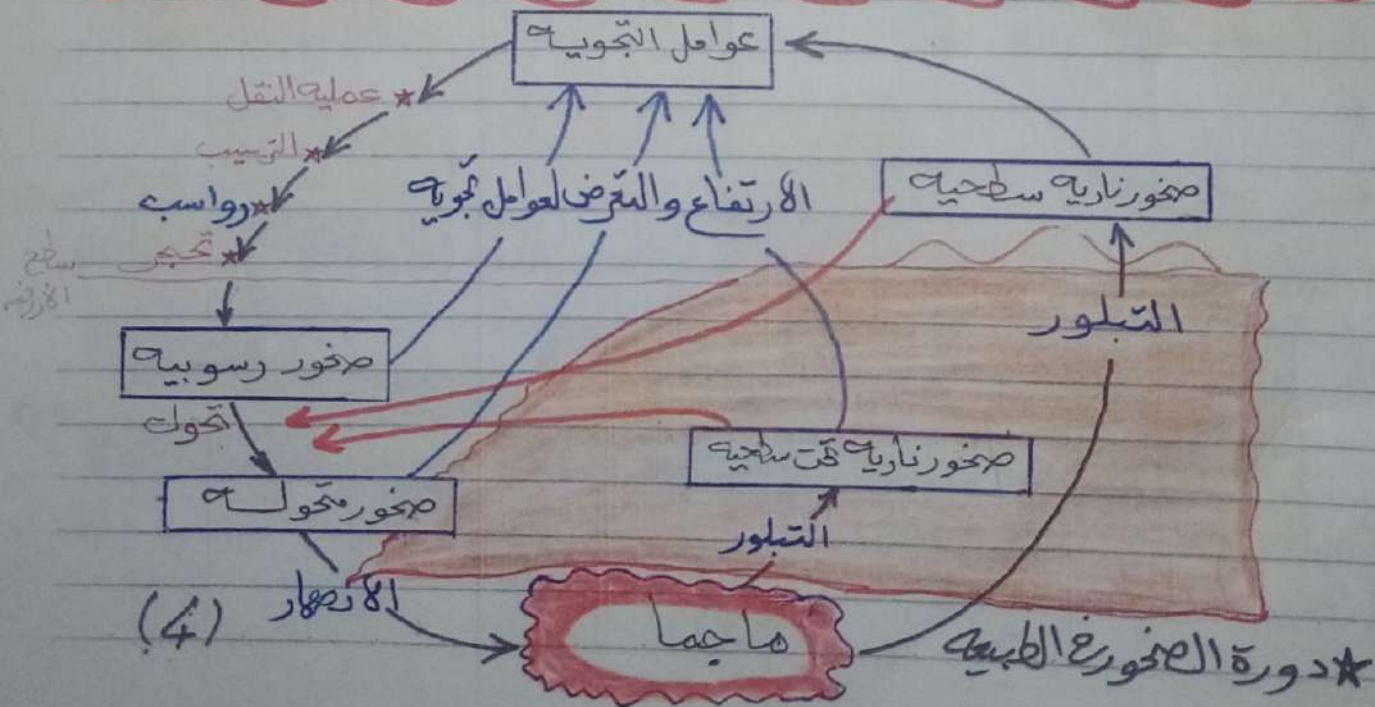 عوامل التجويه
★ عمليه النقل
★ الترسيب
★ رواسب
★ تحجر
سطح
الأرض
الارتفاع والتعرض لعوامل تجويه
صخور ناريه سطحيه
التبلور
صخور رسوبيه
تحول
صخور ناريه تحت سطحيه
صخور متحوله
التبلور
الانصهار
ماجما
(4)
★ دورة الصخور في الطبيعه